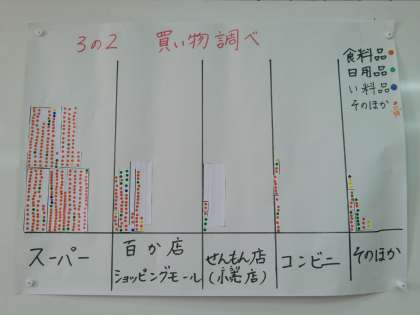 3の2 買い物調べ
食料品
日用品
い料品
そのほか
スーパー
百か店
ショッピングモール
せんもん店
(小売店)
コンビニ
そのほか